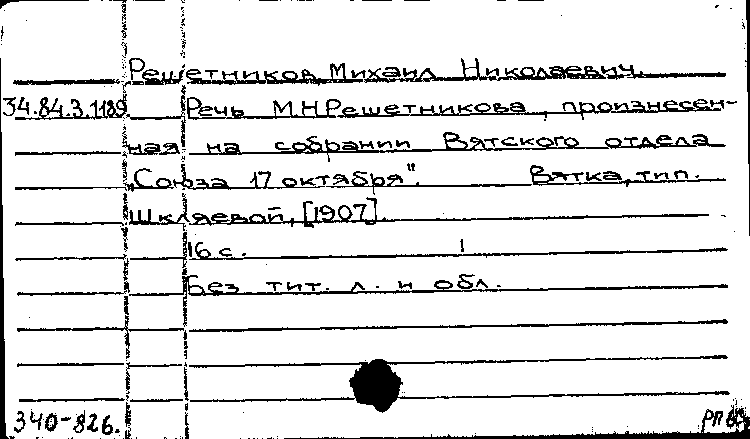 Решетников, Михаил Николаевич.
34.84.3.1189. Речь М.Н.Решетникова, произнесен-
ная на собрании Вятского отдела
„Союза 17 октября". Вятка, тип.
Шкляевой, [1907].
16 с.
Без тит. л. и обл.
340-826.